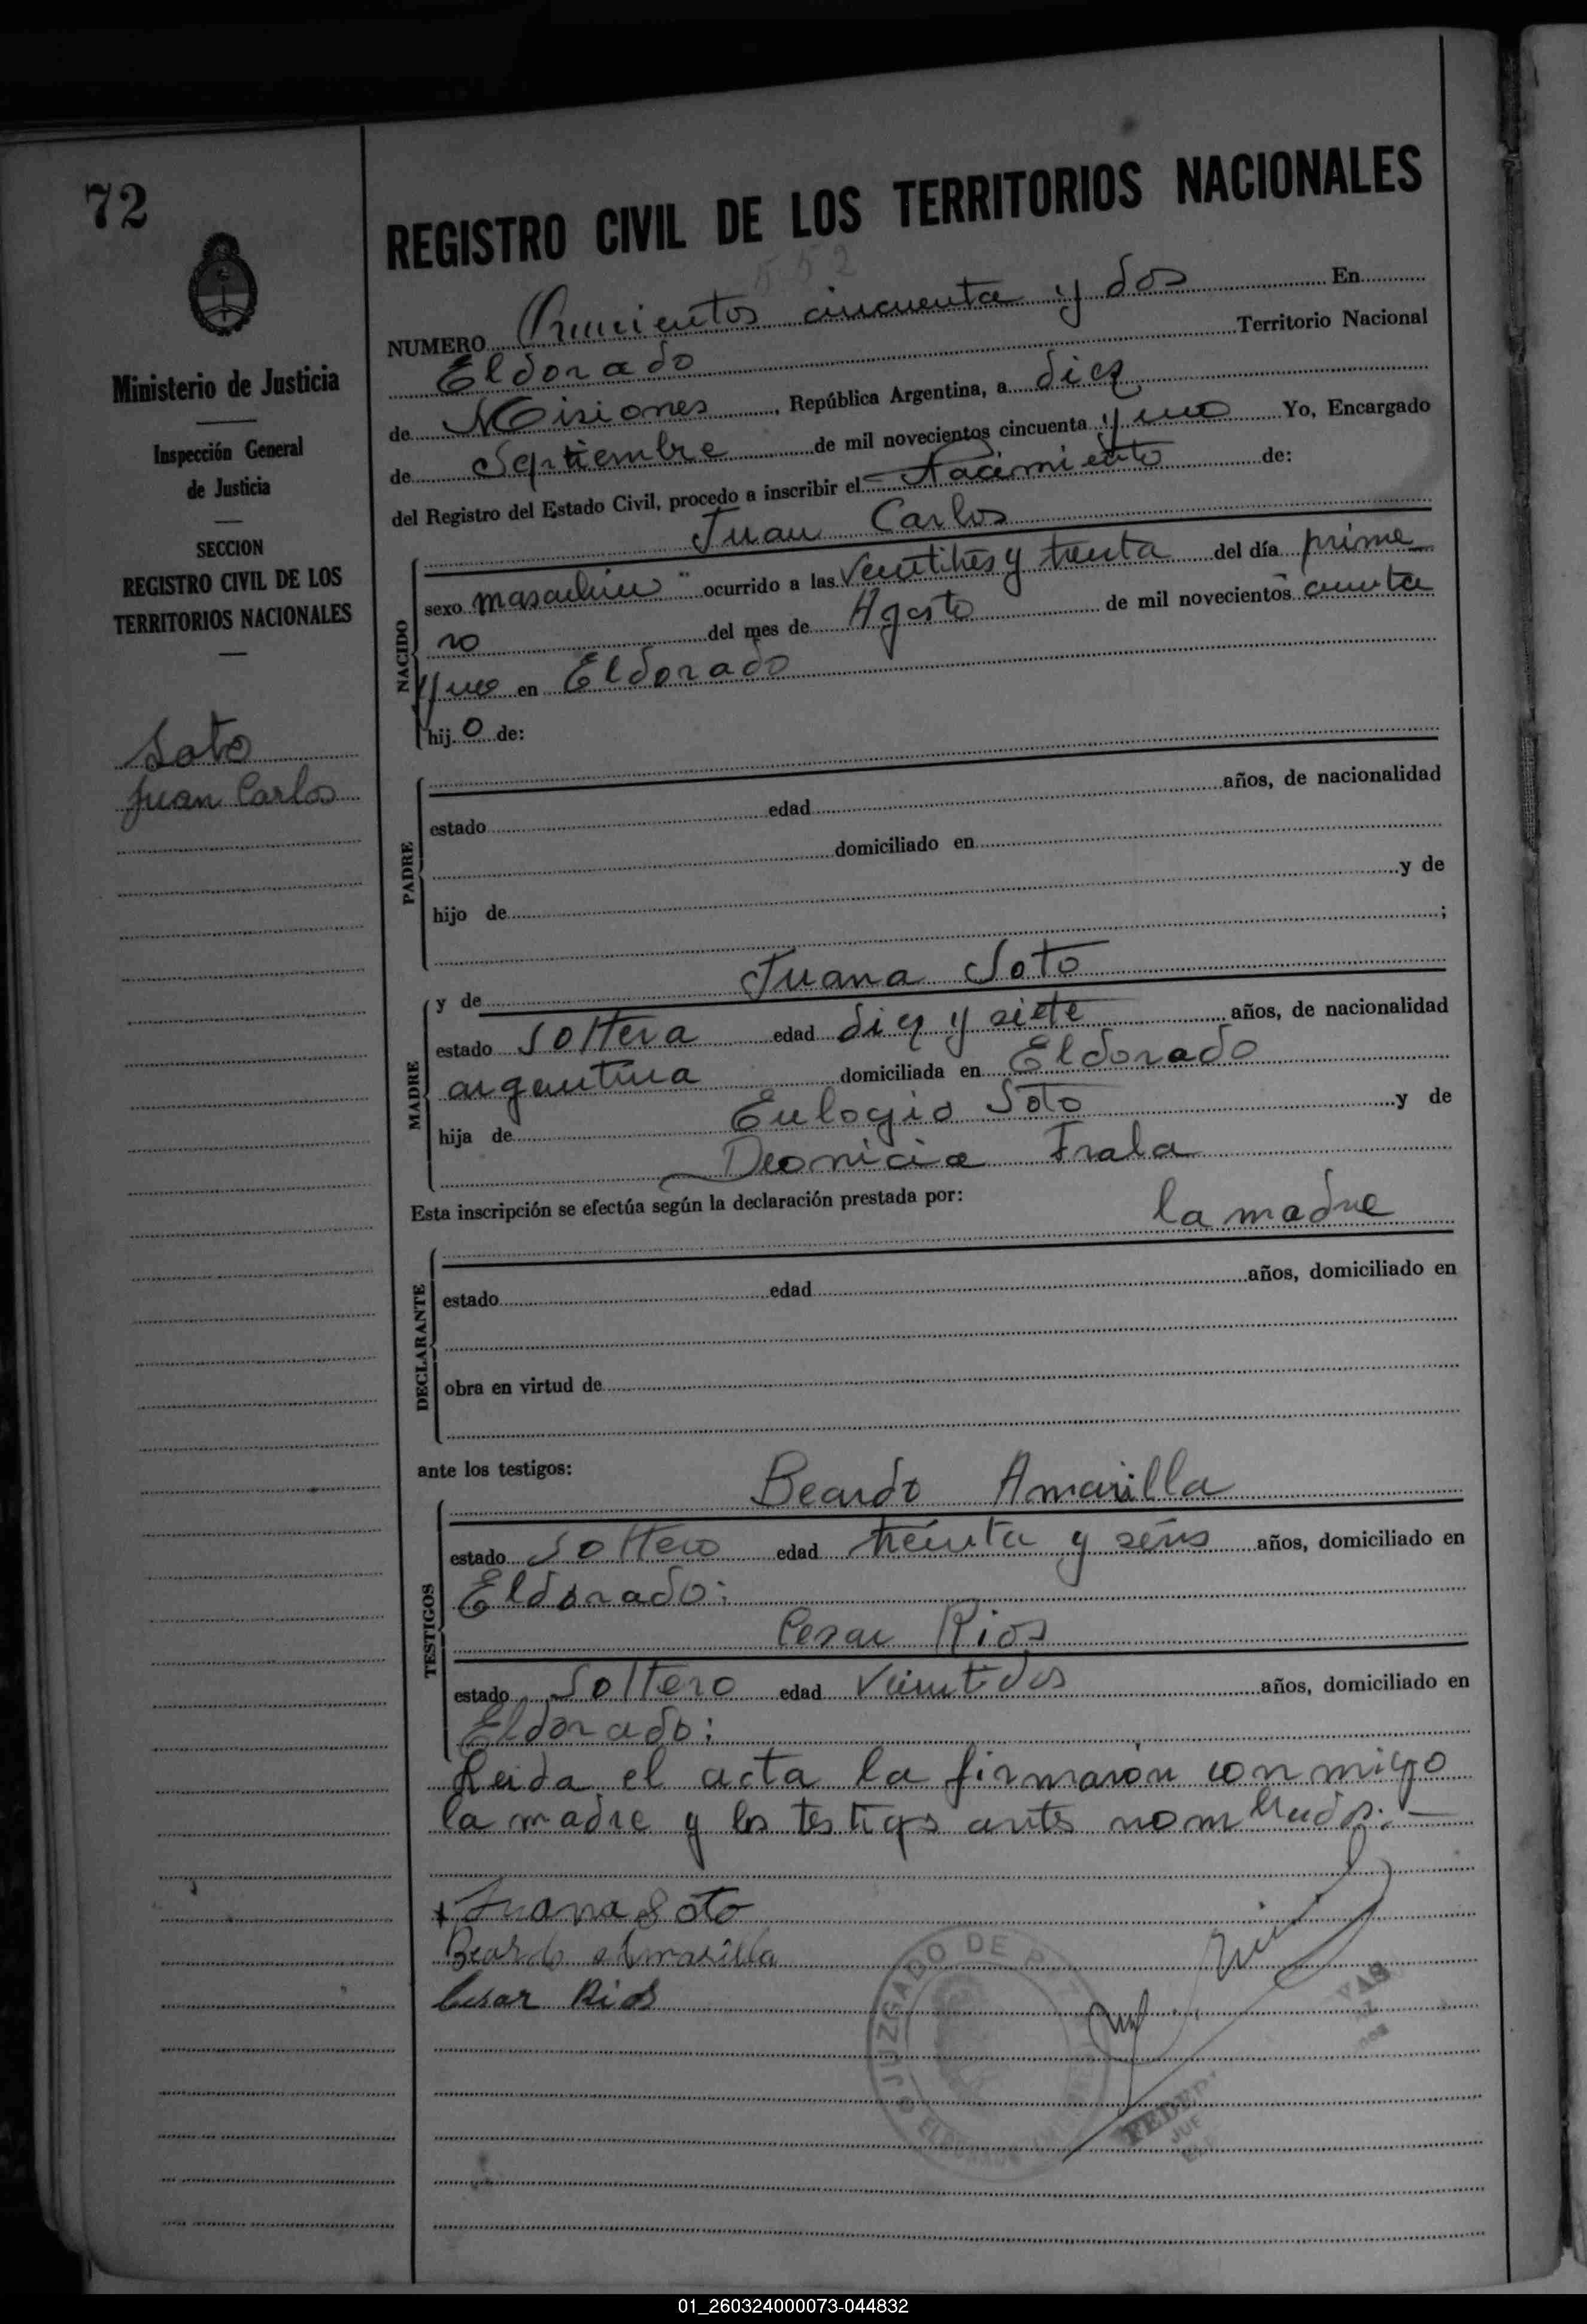 72
Ministerio de Justicia
Inspección General
de Justicia
SECCION
REGISTRO CIVIL DE LOS
TERRITORIOS NACIONALES
Soto
Juan Carlos
REGISTRO CIVIL DE LOS TERRITORIOS NACIONALES
552
NUMERO Quinientos cincuenta y dos En
Eldorado Territorio Nacional
de Misiones, República Argentina, a diez
de Septiembre de mil novecientos cincuenta y uno Yo, Encargado
del Registro del Estado Civil, procedo a inscribir el Nacimiento de:
Juan Carlos
NACIDO
sexo masculino ocurrido a las ventitres y trenta del día prime
ro del mes de Agosto de mil novecientos
y uno en Eldorado
hijo de:
PADRE
estado edad años, de nacionalidad
domiciliado en
hijo de y de
;
MADRE
y de Juana Soto
estado Soltera edad diez y siete años, de nacionalidad
argentina domiciliada en Eldorado
hija de Eulogio Soto y de
Deonicia Frala
Esta inscripción se efectúa según la declaración prestada por:
la madre
DECLARANTE
estado edad años, domiciliado en
obra en virtud de
ante los testigos:
TESTIGOS
Beardo Amarilla
estado Soltero edad treinta y seis años, domiciliado en
Eldorado:
Cesar Rios
estado Soltero edad veintidos años, domiciliado en
Eldorado:
Leida el acta la firmarón conmigo
la madre y los testigos antes nombrados.
Juana Soto
Beardo Amarilla
Cesar Rios
JUZGADO DE
01_260324000073-044832